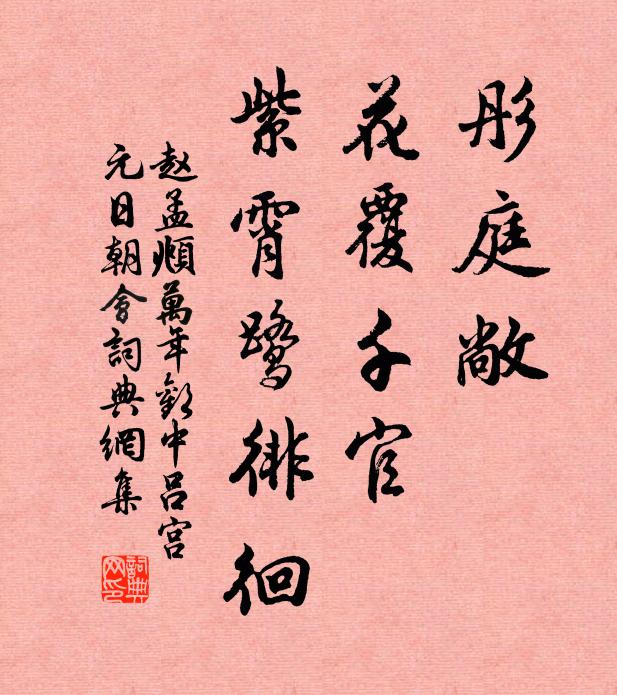 彤庭敞
花覆千官
紫霄鹭徘徊
赵孟頫萬年歡中吕宫
元日朝會詞典網集
詞典网印